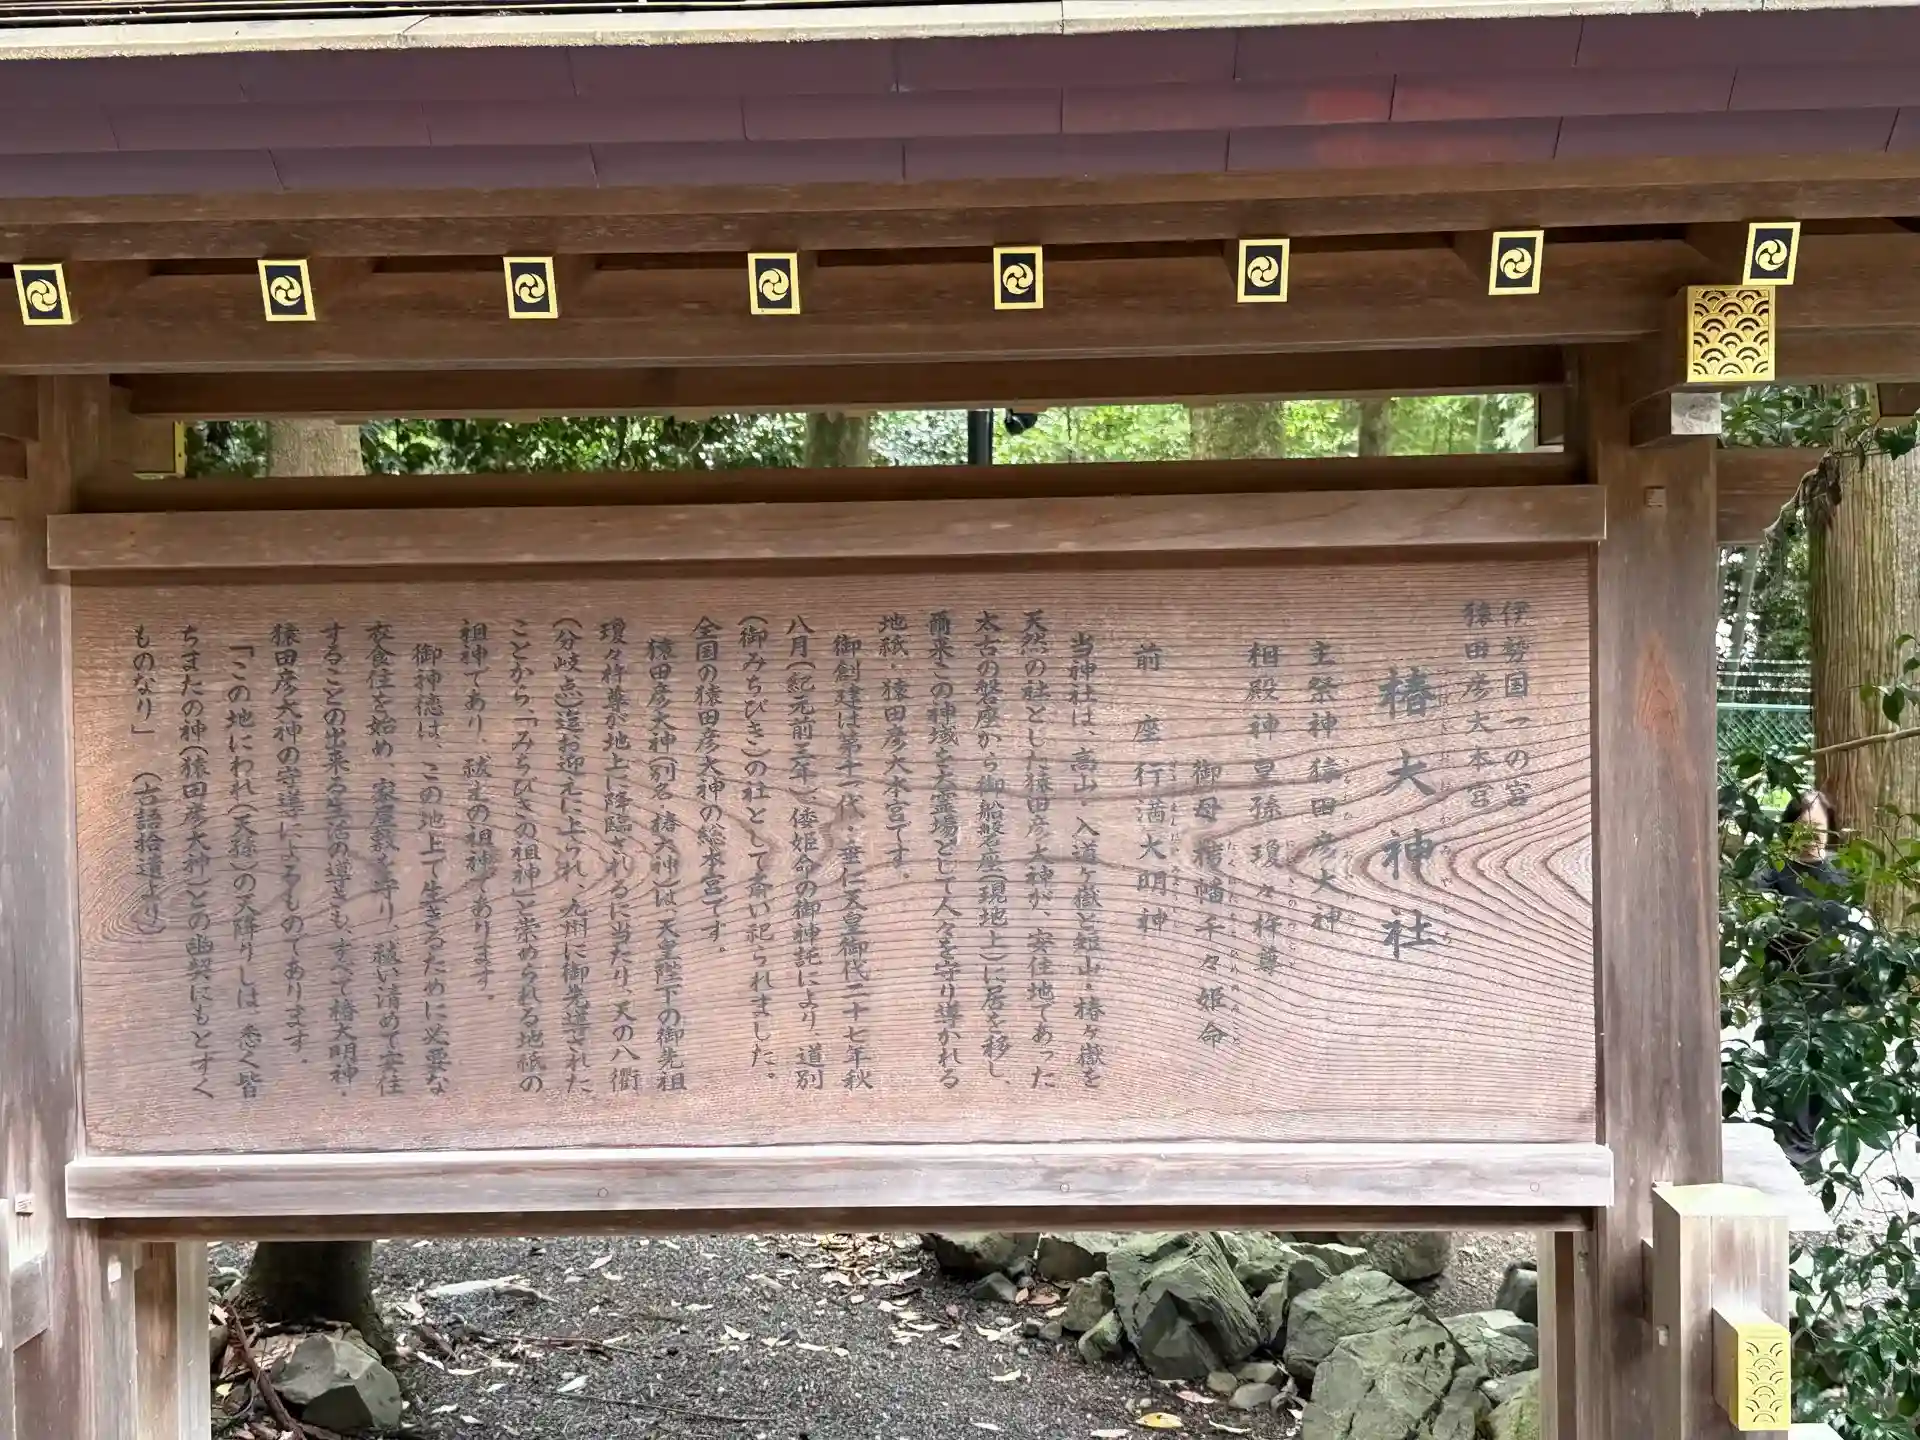 伊勢国一の宮
猿田彦大本宮
椿大神社
つばきおおかみやしろ
主祭神 猿田彦大神
相殿神 皇孫 瓊々杵尊
御母 栲幡千々姫命
たくはたちぢひめのみこと
前座 行満大明神
当神社は、高山・入道ヶ嶽と短山・椿ヶ嶽を
天然の社とした猿田彦大神が、安住地であった
太古の磐座から御船磐座(現地上)に居を移し、
爾来この神域を大霊場として人々を守り導かれる
地祇・猿田彦大本宮です。
御創建は第十一代・垂仁天皇御代二十七年秋
八月(紀元前三年)、倭姫命の御神託により、道別
(御みちびき)の社として斎い祀られました。
全国の猿田彦大神の総本宮です。
猿田彦大神(別名・椿大神)は、天皇陛下の御先祖
瓊々杵尊が地上に降臨されるに当たり、天の八衢
(分岐点)迄お迎えに上られ、九州に御先導された
ことから、「みちびきの祖神」と崇められる地祇の
祖神であり、祓土の祖神であります。
御神徳は、この地上で生きるために必要な
衣食住を始め、家屋敷を守り、祓い清めて安住
することの出来る生活の導きも、すべて椿大明神・
猿田彦大神の守導によるものであります。
「この地にわれ(天孫)の天降りしは、悉く皆
ちまたの神(猿田彦大神)との幽契にもとずく
ものなり」 (古語拾遺より)